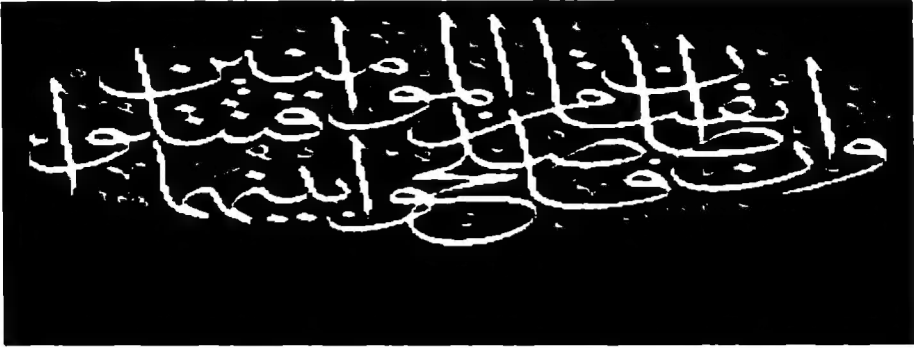 وان طائفتان من المؤمنين اقتتلوا فاصلحوا بينهما